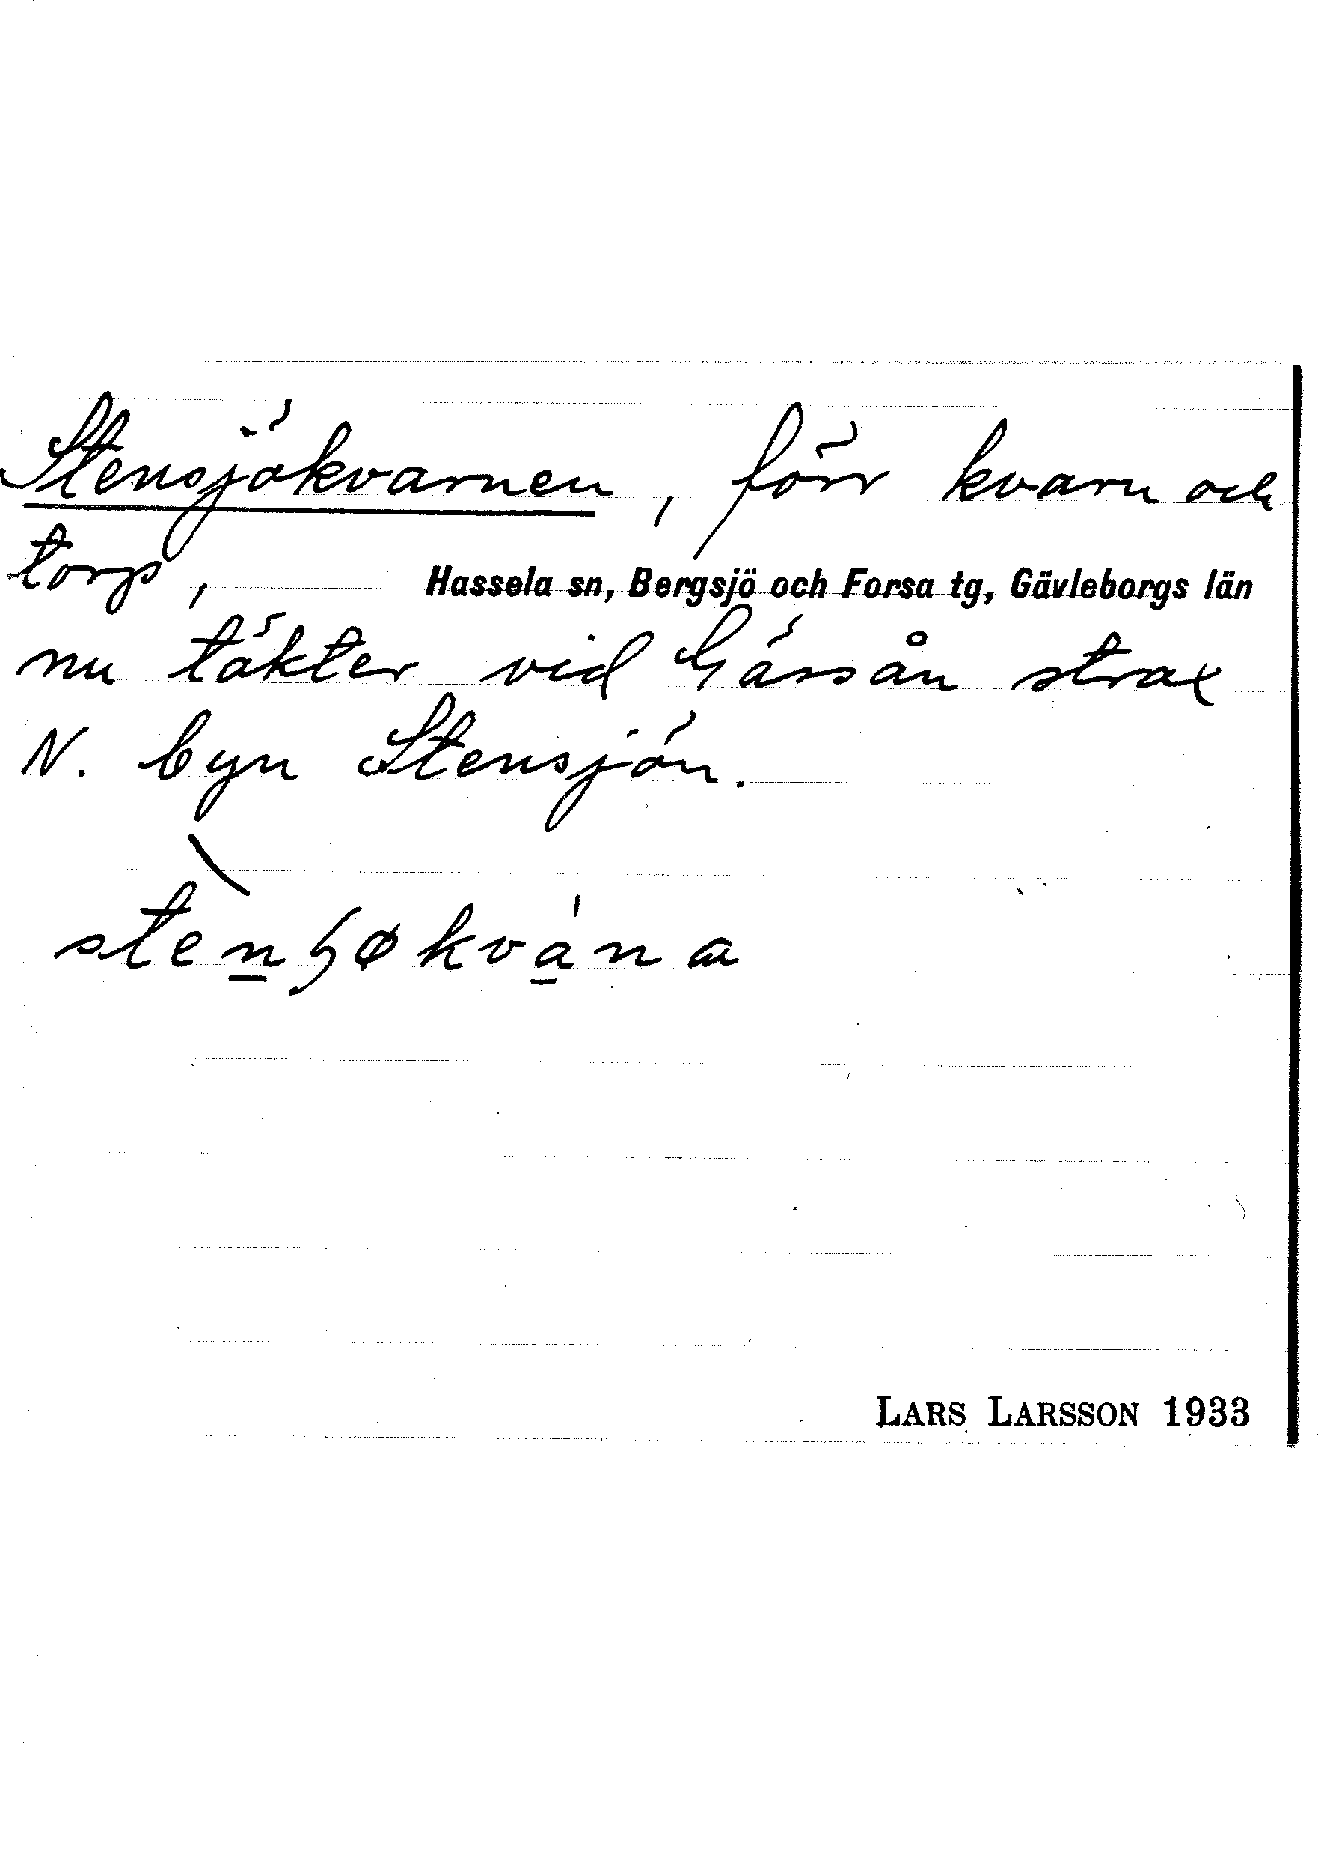 Stensjökvarnen, förr kvarn och
torp, Hassela sn, Bergsjö och Forsa tg, Gävleborgs län
nu täkter vid Gåssån strax
N. byn Stensjön.
LARS LARSSON 1933